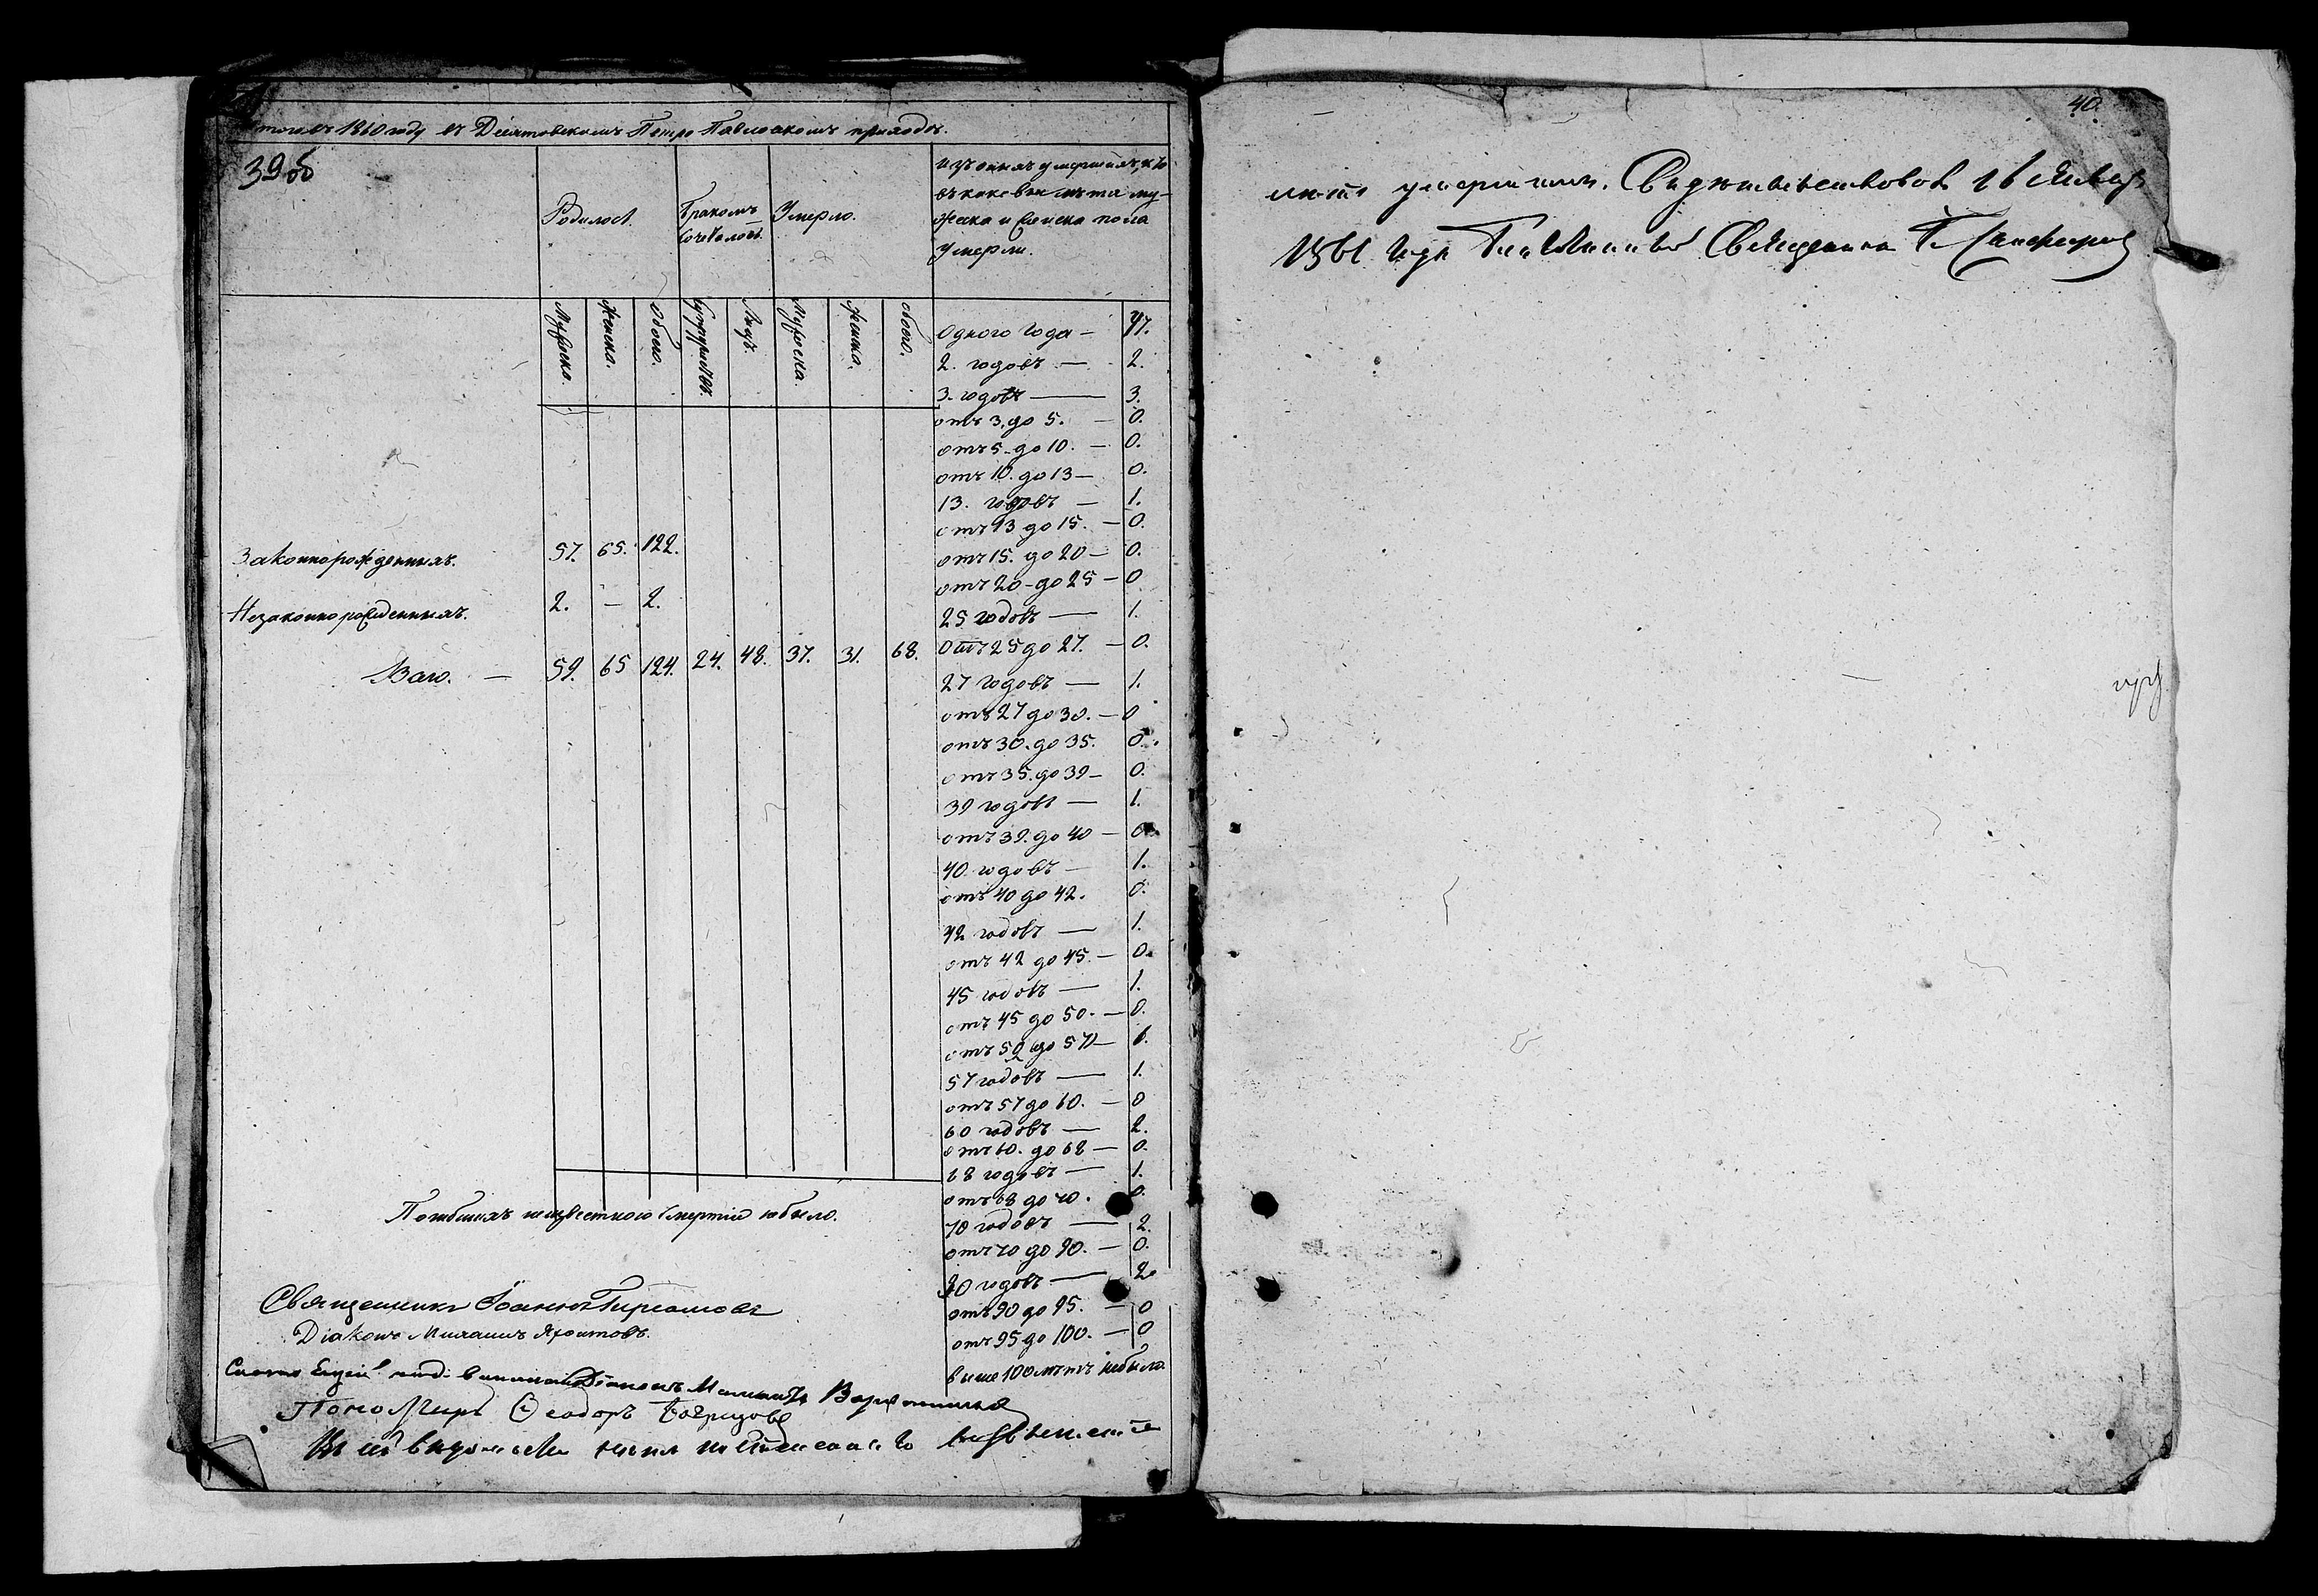 Итого въ 1860 году въ Десятовскомъ Петро Павловскомъ приходѣ.
39 об
Родилось.
Бракомъ
Сочеталось.
Умерло.
изъ оныхъ умершихъ, кто
въ каковыя лѣта му-
жеска и Женска пола
Умерли.
Мужеска.
Женска.
Обоего.
Супружествъ.
Лицъ.
Мужеска.
Женска.
обоего.
Одного года — 47.
2. годовъ — 2.
3. годовъ — 3.
отъ 3. до 5. — 0.
отъ 5. до 10. — 0.
отъ 10. до 13 — 0.
13. годовъ — 1.
отъ 13 до 15. — 0.
отъ 15. до 20 — 0.
отъ 20 - до 25 — 0
25 годовъ — 1.
Отъ 25 до 27. — 0.
27 годовъ — 1.
отъ 27 до 30. — 0
отъ 30. до 35. 0.
отъ 35. до 39 — 0.
39 годовъ — 1.
отъ 39. до 40 — 0.
40. годовъ — 1.
отъ 40 до 42. 0.
42 годовъ — 1.
отъ 42 до 45. — 0.
45 годовъ — 1.
отъ 45 до 50. — 0.
отъ 50 до 57 — 0.
57 годовъ — 1.
отъ 57 до 60. — 0
60 годовъ — 2.
отъ 60. до 68 — 0.
68 годовъ — 1.
отъ 68 до 70. 0.
70 годовъ — 2.
отъ 70 до 90. — 0.
90 годовъ — 2.
отъ 90 до 95. — 0
отъ 95 до 100. — 0
выше 100 лѣтъ небыло.
Законнорожденныхъ. 57. 65. 122.
Незаконнорожденныхъ. 2. — 2.
Всего. — 59. 65 124. 24. 48. 37. 31. 68.
Погибшихъ неизвестною смертію небыло.
Священникъ Іоаннъ
Діаконъ Михаилъ
Діаконъ
Пономарь Ѳеодоръ
40.
умершихъ. Свидѣтельствовалъ 16 Января
1861 года Священникъ